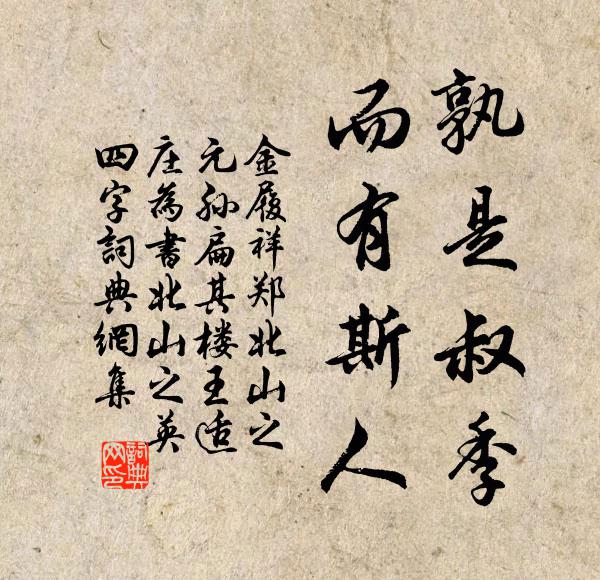 孰是叔季
而有斯人
金履祥郑北山之
元孙扁其楼王适
庄為書北山之英
四字詞典網集
詞典网印